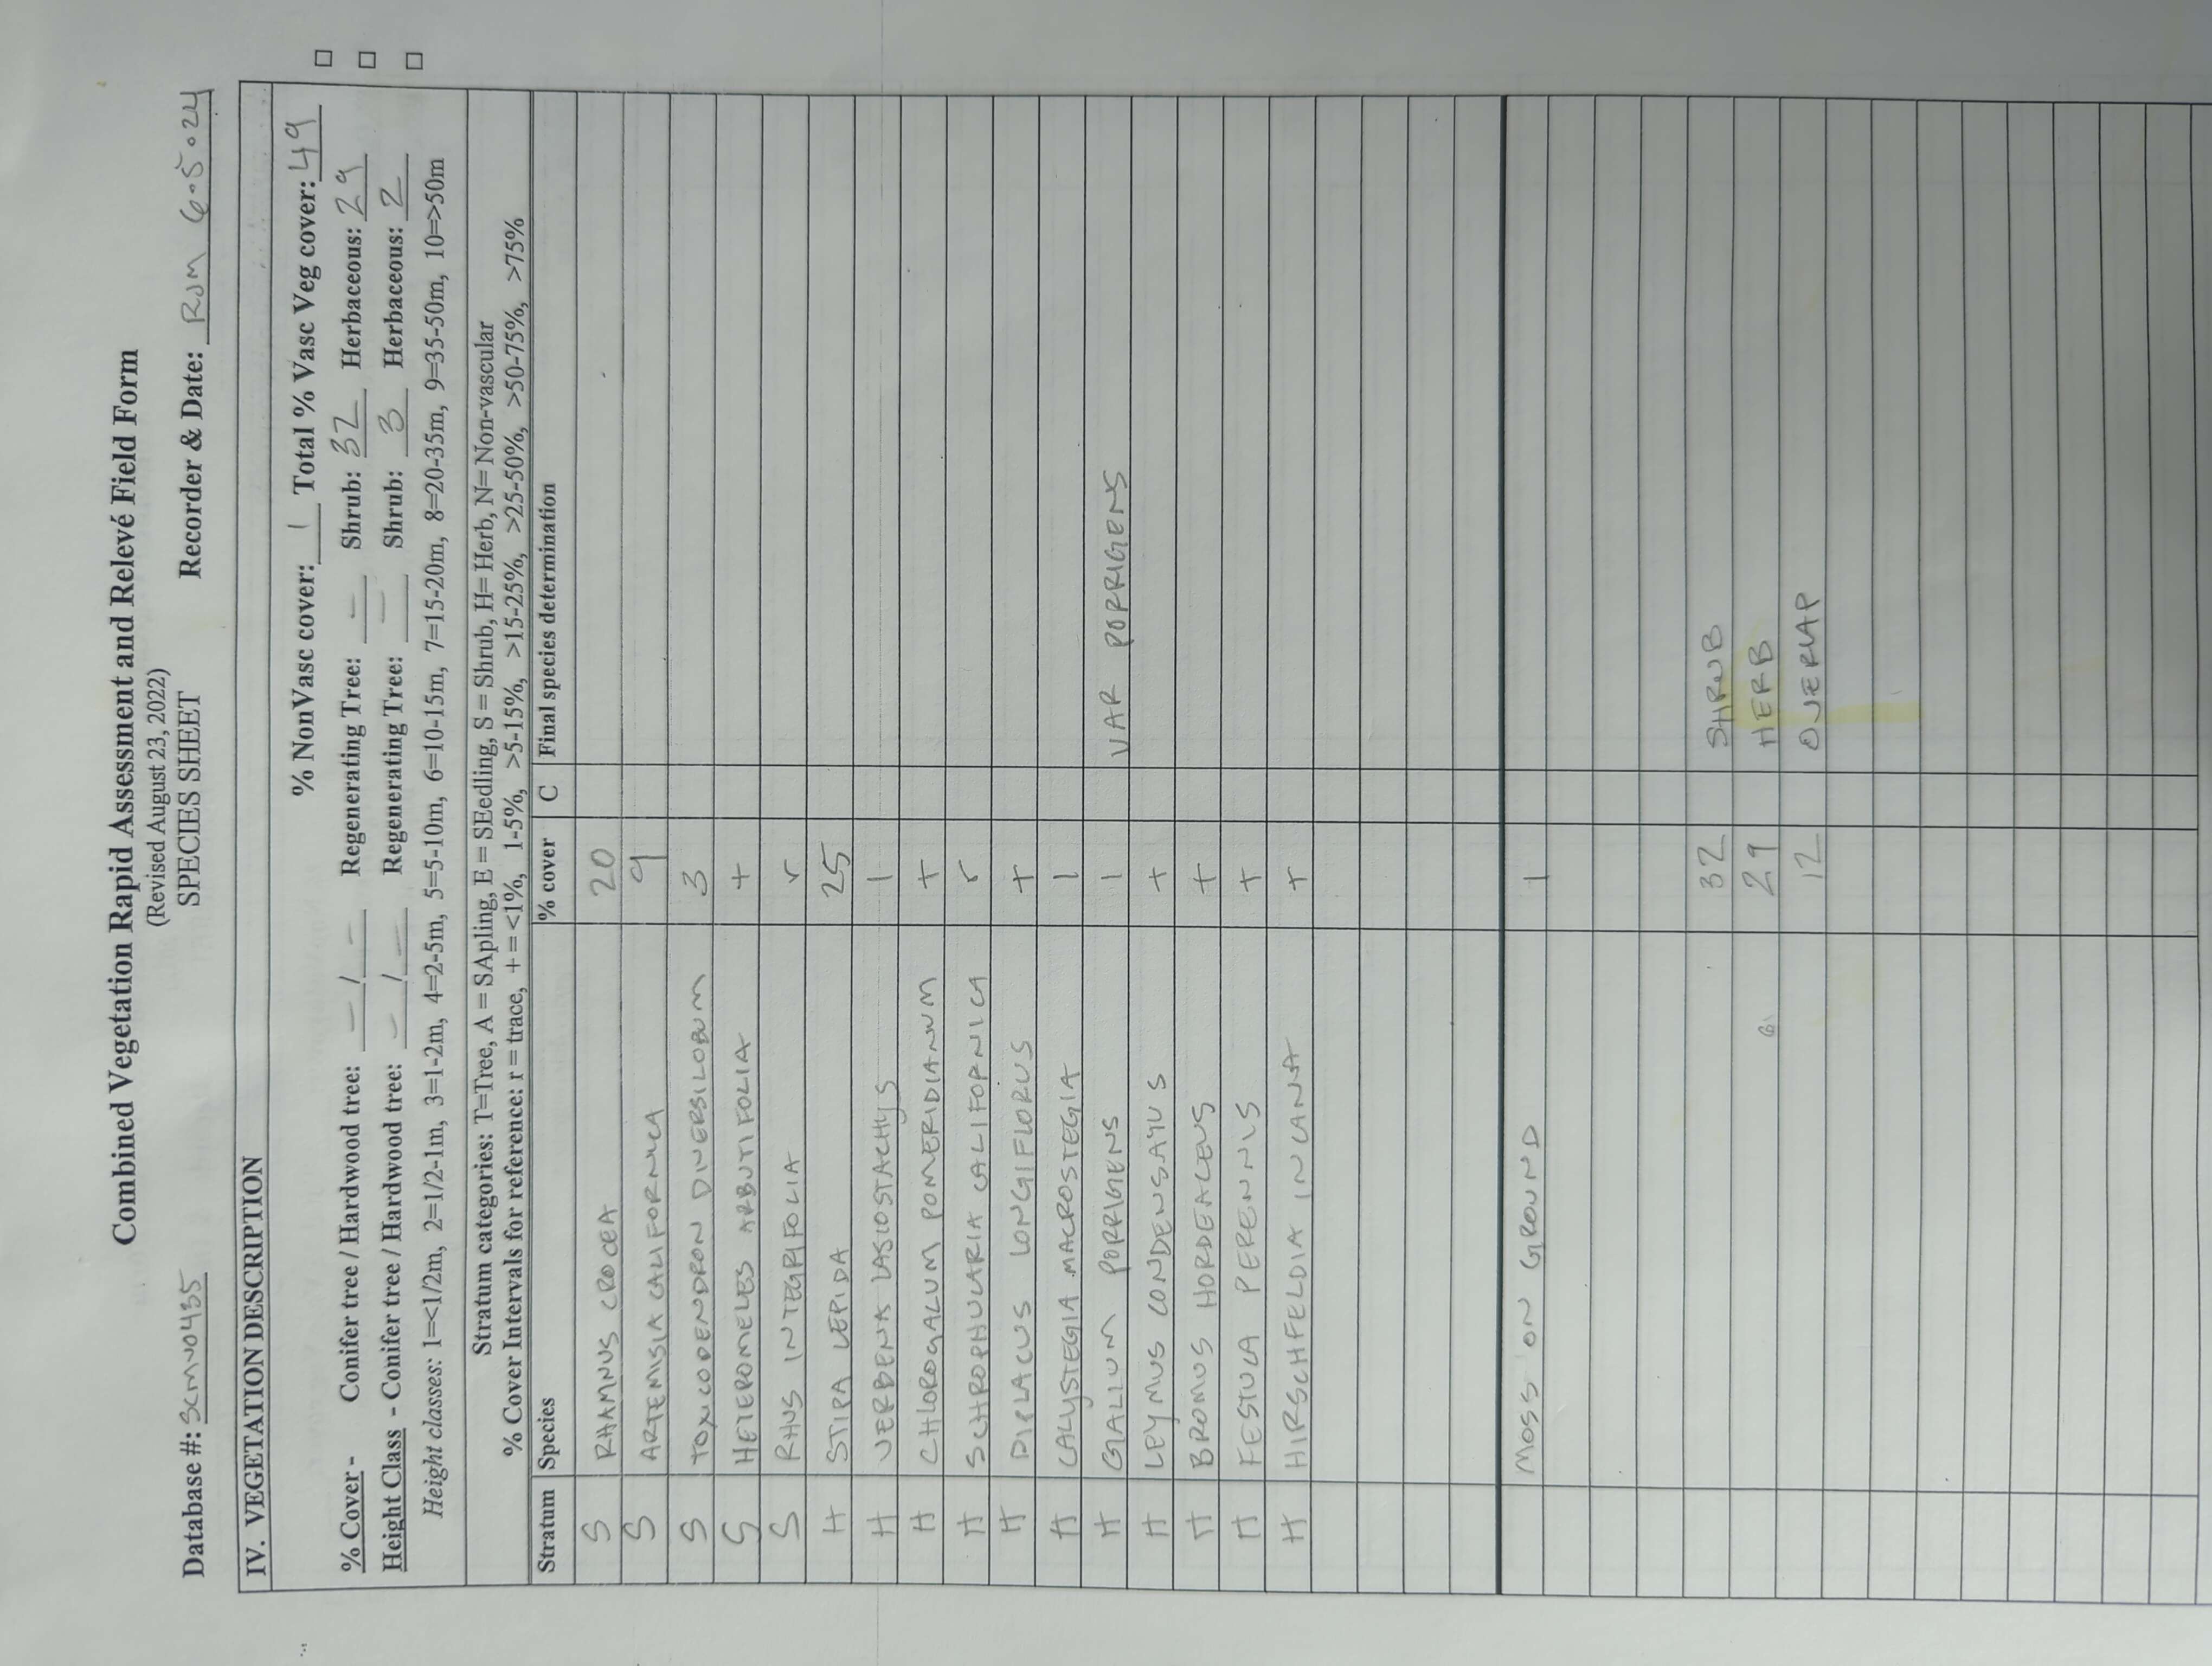 Combined Vegetation Rapid Assessment and Relevé Field Form
(Revised August 23, 2022)
Database #: SCMV0435 SPECIES SHEET Recorder & Date: RJM 6.5.24
IV. VEGETATION DESCRIPTION
% NonVasc cover: 1 Total % Vasc Veg cover: 49 □
% Cover - Conifer tree / Hardwood tree: – / – Regenerating Tree: – Shrub: 32 Herbaceous: 29 □
Height Class - Conifer tree / Hardwood tree: – / – Regenerating Tree: – Shrub: 3 Herbaceous: 2 □
Height classes: 1=<1/2m, 2=1/2-1m, 3=1-2m, 4=2-5m, 5=5-10m, 6=10-15m, 7=15-20m, 8=20-35m, 9=35-50m, 10=>50m
Stratum categories: T=Tree, A = SApling, E = SEedling, S = Shrub, H= Herb, N= Non-vascular
% Cover Intervals for reference: r = trace, + = <1%, 1-5%, >5-15%, >15-25%, >25-50%, >50-75%, >75%
Stratum Species % cover C Final species determination
S RHAMNUS CROCEA 20
S ARTEMISIA CALIFORNICA 9
S TOXICODENDRON DIVERSILOBUM 3
S HETEROMELES ARBUTIFOLIA +
S RHUS INTEGRIFOLIA r
H STIPA LEPIDA 25
H VERBENA LASIOSTACHYS 1
H CHLOROGALUM POMERIDIANUM +
H SCHROPHULARIA CALIFORNICA r
H DIPLACUS LONGIFLORUS +
H CALYSTEGIA MACROSTEGIA 1
H GALIUM PORRIGENS 1 VAR PORRIGENS
H LEYMUS CONDENSATUS +
H BROMUS HORDEACEUS +
H FESTUCA PERENNIS +
H HIRSCHFELDIA INCANA +
MOSS ON GROUND 1
32 SHRUB
29 HERB
12 OVERLAP